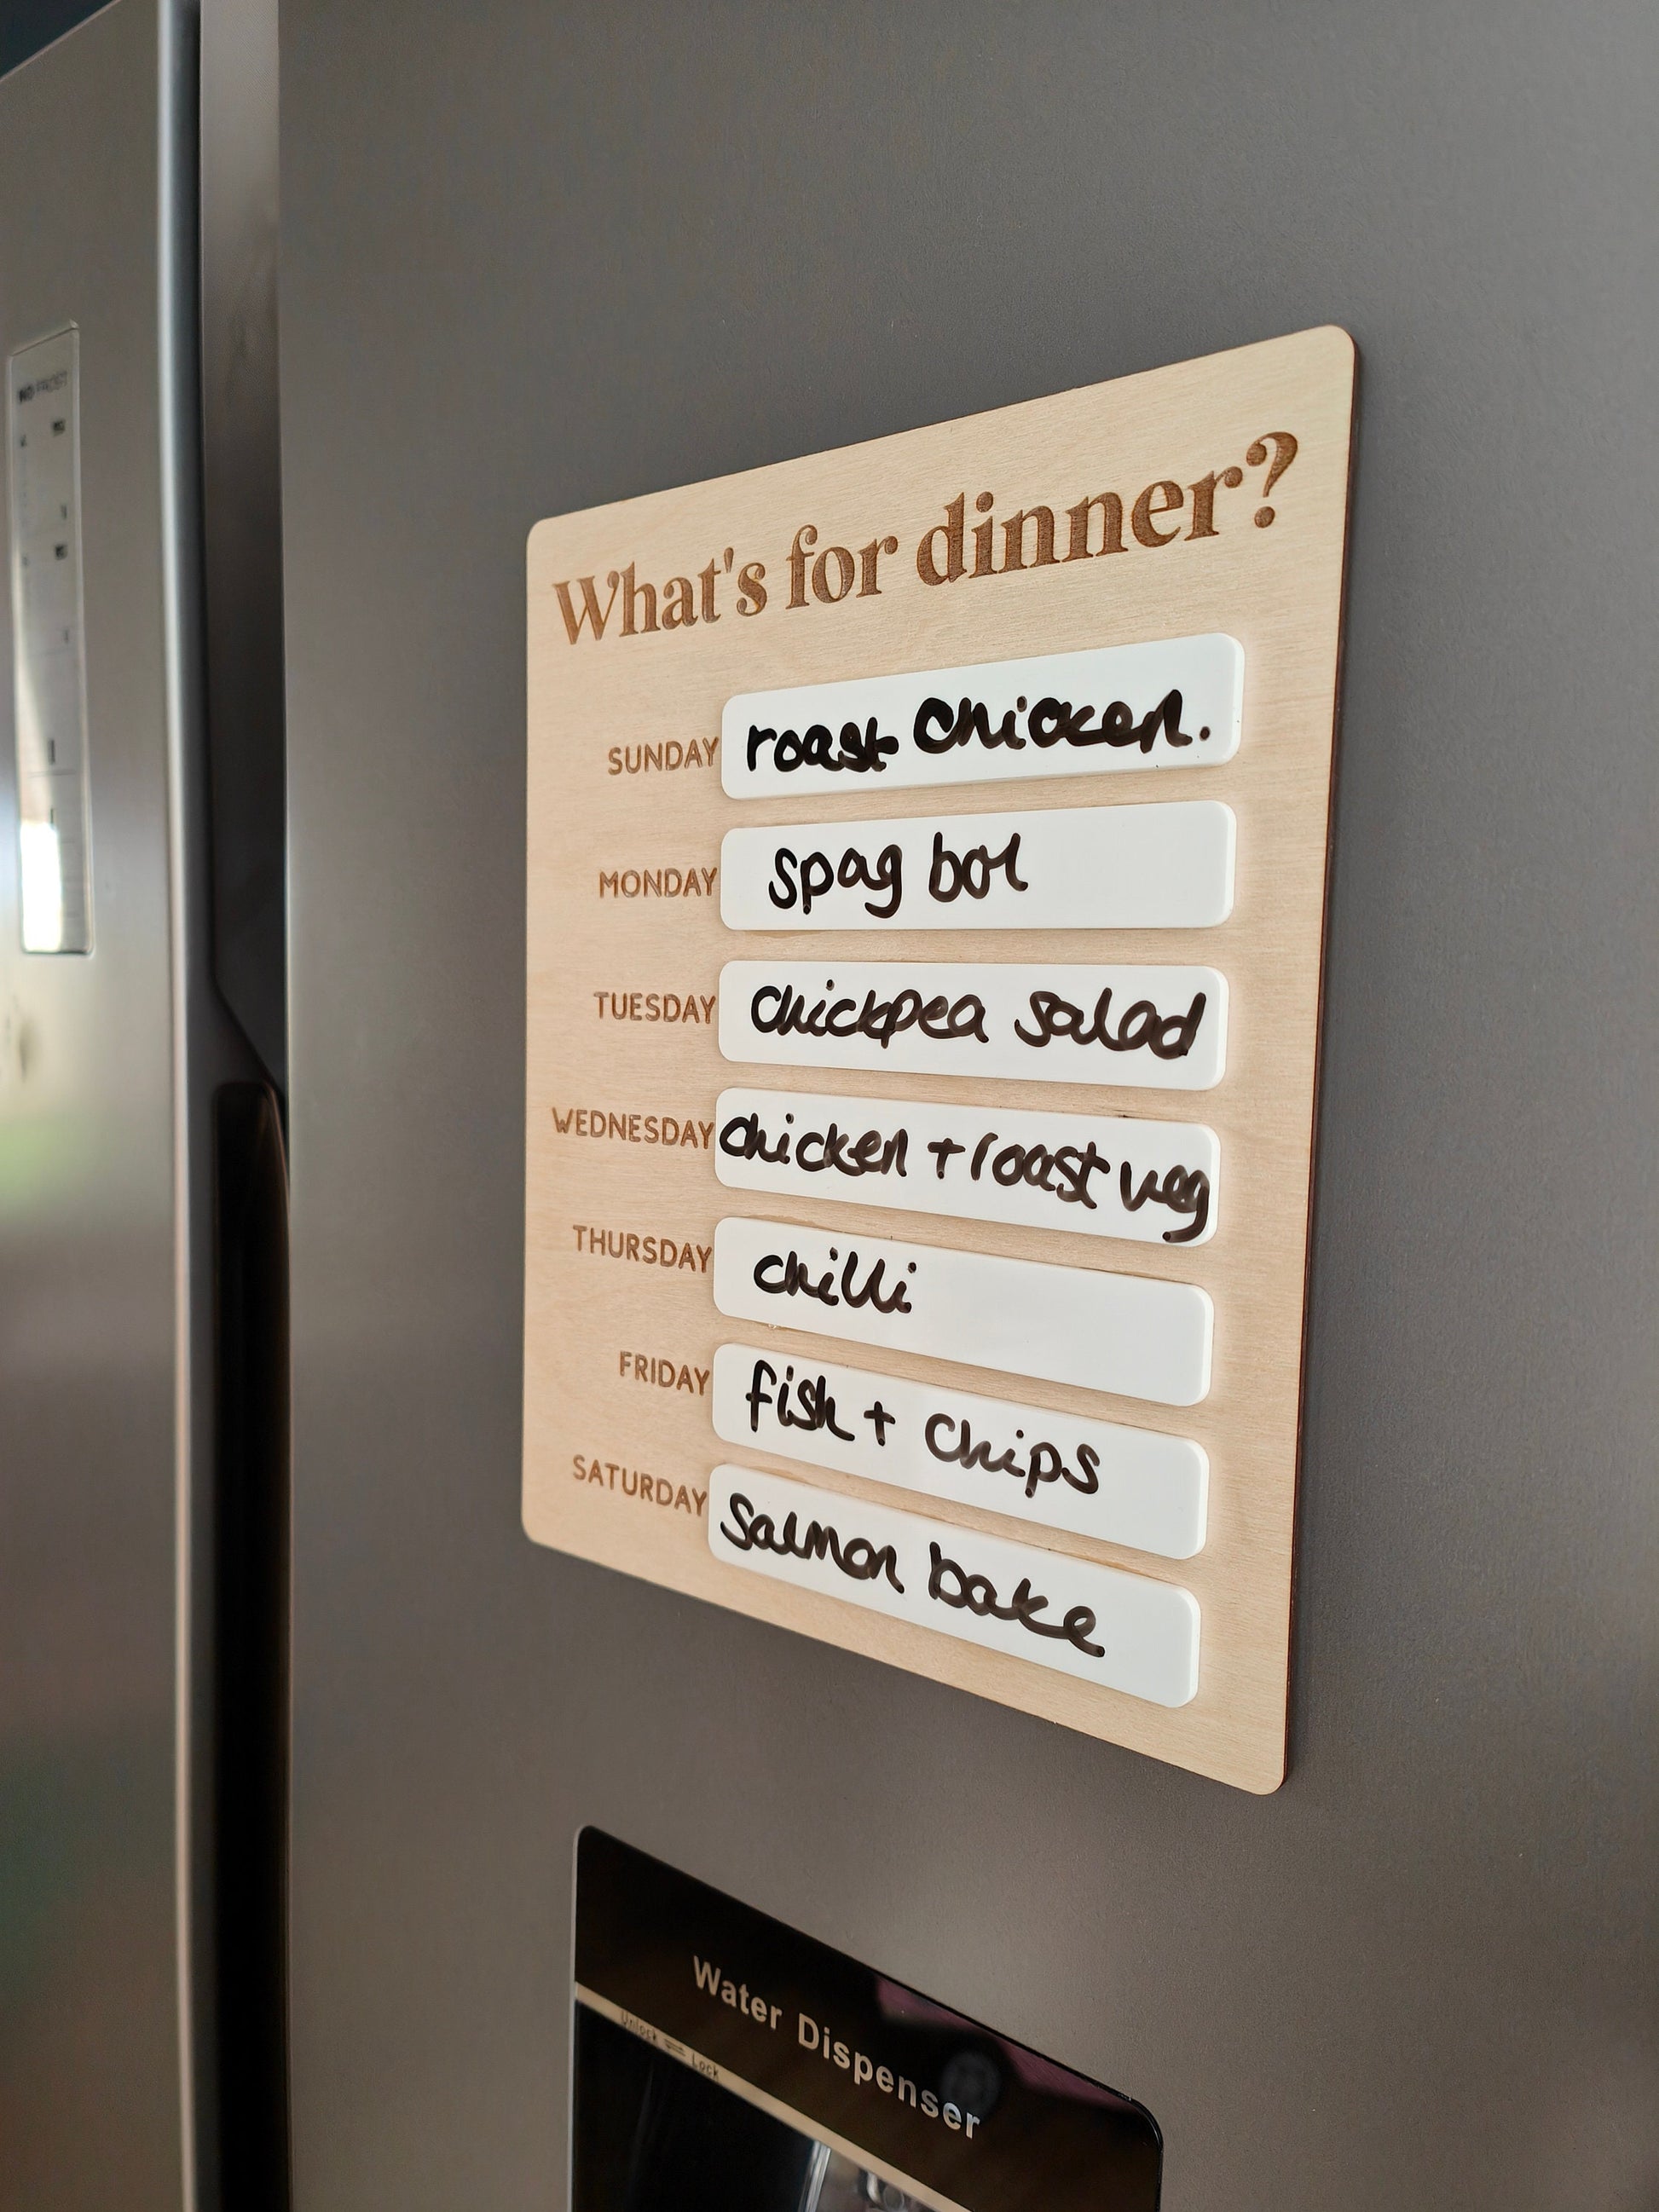 NO FROST
What's for dinner?
SUNDAY roast chicken.
MONDAY spag bol
TUESDAY chickpea salad
WEDNESDAY chicken + roast veg
THURSDAY chilli
FRIDAY fish + chips
SATURDAY Salmon bake
Water Dispenser
Unlock ⇌ Lock